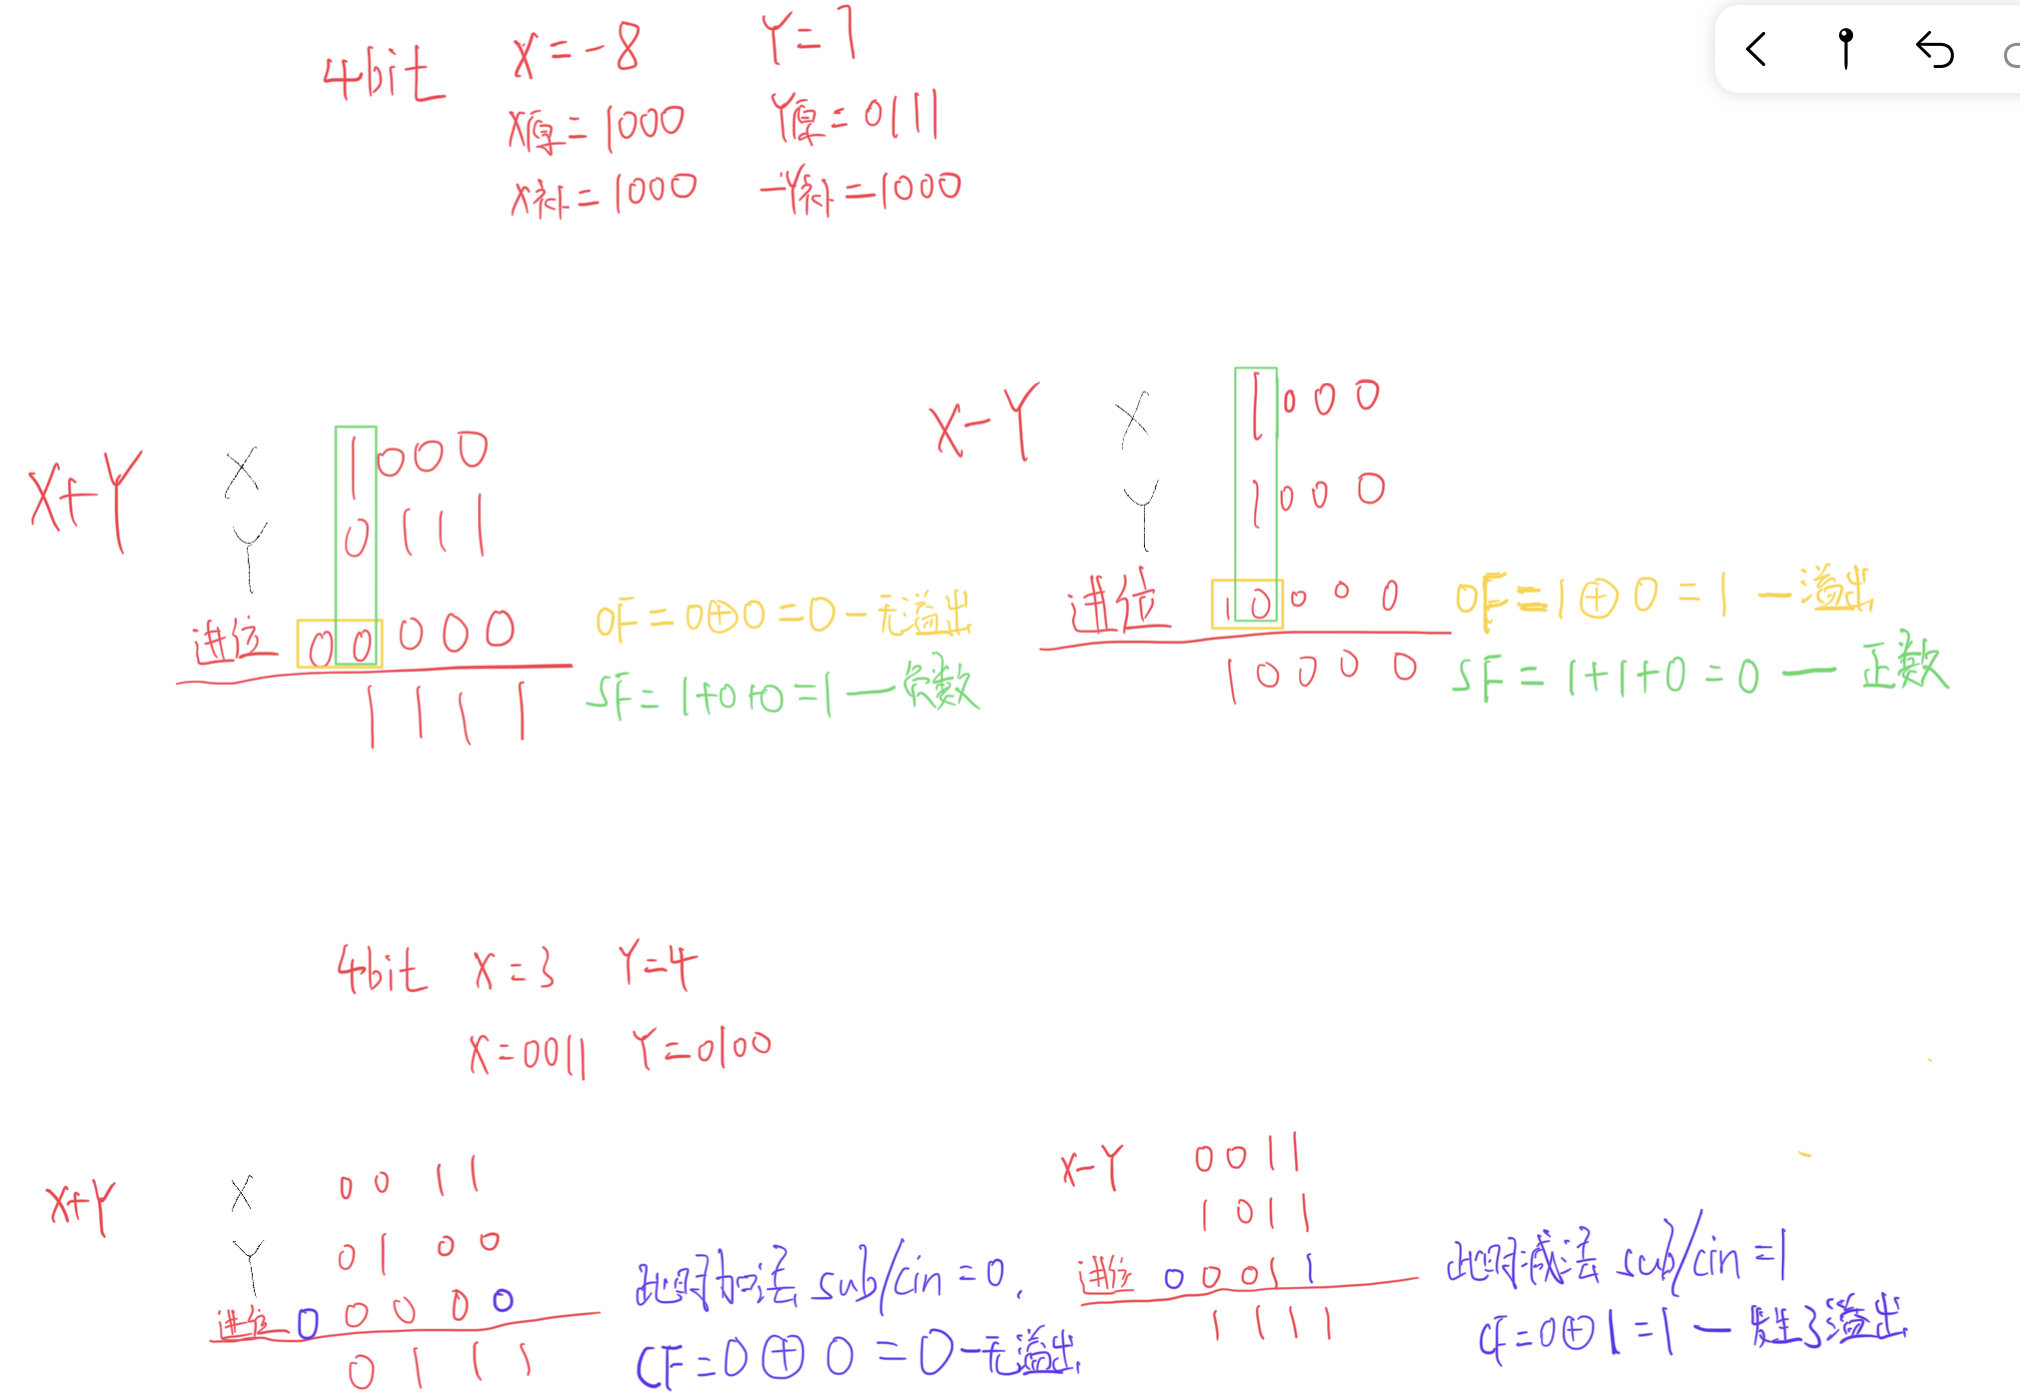 4bit X=-8 Y=7
X原=1000 Y原=0111
X补=1000 -Y补=1000
X+Y
X 1000
Y 0111
进位 00000
1111
OF=0⊕0=0-无溢出
SF=1+0+0=1—负数
X-Y
X 1000
Y 1000
进位 10000
10000
OF=1⊕0=1—溢出
SF=1+1+0=0—正数
4bit X=3 Y=4
X=0011 Y=0100
X+Y
X 0011
Y 0100
进位 00000
0111
此时加法 sub/cin=0.
CF=0⊕0=0-无溢出
X-Y 0011
1011
进位 00011
1111
此时减法 sub/cin=1
CF=0⊕1=1—发生了溢出